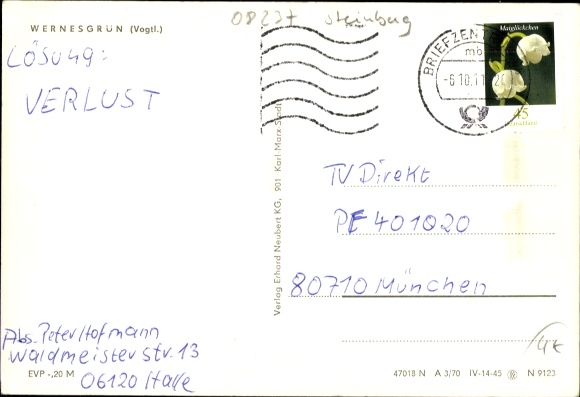 08237 Steinberg
WERNESGRÜN (Vogtl.)
LÖSUNG:
VERLUST
BRIEFZEN
mb
-6.10.11
Maiglöckchen
45
Deutschland
Verlag Erhard Neubert KG, 901 Karl-Marx-Stadt
TV Direkt
PF 401020
80710 München
Abs. Peter Hofmann
Waldmeister Str. 13
06120 Halle
4€
EVP -,20 M
47018 N A 3/70 IV-14-45 N 9123